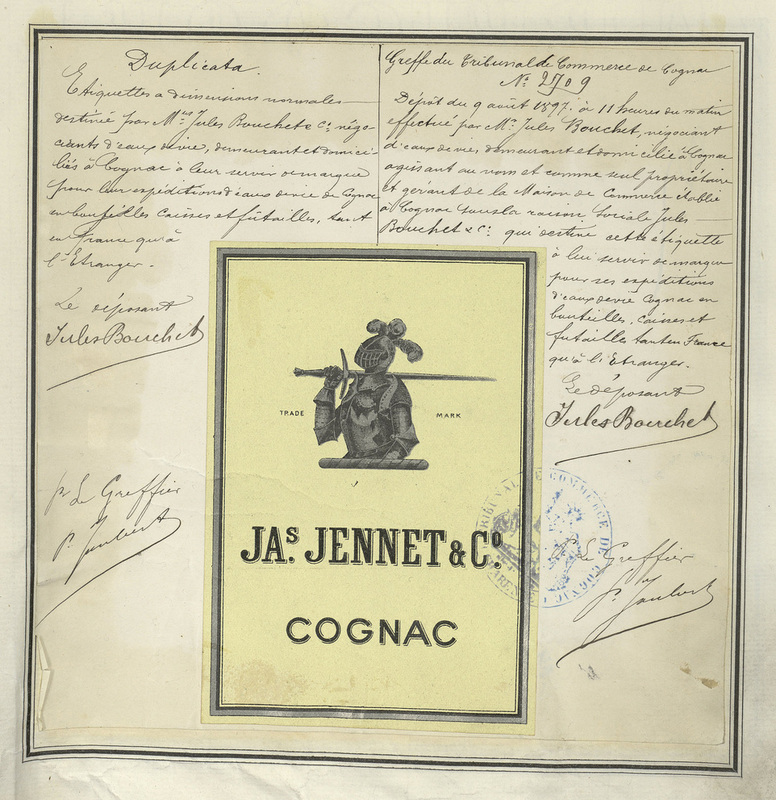 Duplicata.
Etiquettes a dimensions normales
destinée par Mrs Jules Bouchet & Co, négo-
ciants d'eaux de vie, demeurant et domici-
liés à Cognac à leur servir de marque
pour leur expéditions d'eaux de vie de Cognac
en bouteilles caisses et fûtailles, tant
en France qu'à
l'Etranger.
Le déposant
Jules Bouchet
pr Le Greffier
P. Jaubert
Greffe du Tribunal de Commerce de Cognac
No 2709
Dépôt du 9 août 1897, à 11 heures du matin
effectué par Mr Jules Bouchet, négociant
d'eaux de vies demeurant et domicilié à Cognac
agissant au nom et comme seul propriétaire
et gérant de la Maison de Commerce établie
à Cognac sous la raison sociale Jules
Bouchet & Co: qui destine cette étiquette
à lui servir de marque
pour ses expéditions
d'eaux de vie Cognac en
bouteilles, caisses et
futailles tant en France
qu'à l'Etranger.
Le déposant
Jules Bouchet
Le Greffier
P. Jaubert
TRADE MARK
JAS. JENNET & Co.
COGNAC
TRIBUNAL DE COMMERCE DE COGNAC